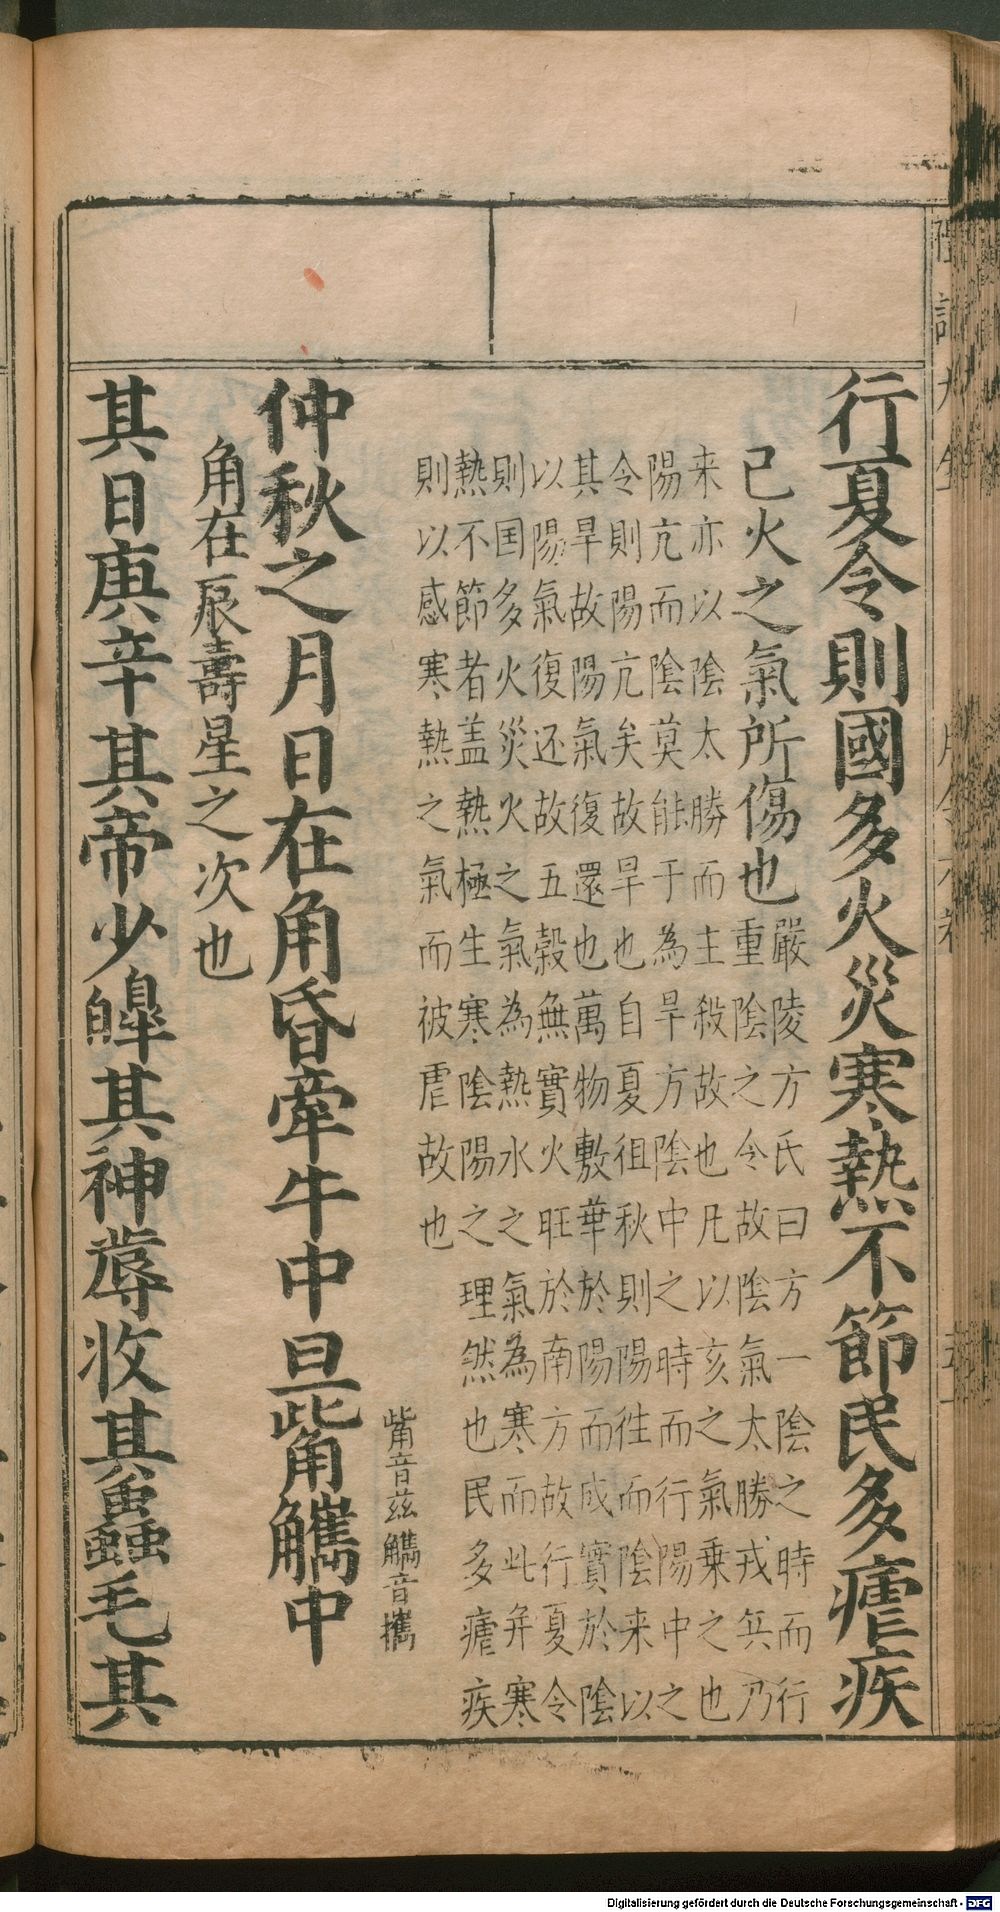 行夏令則國多火災寒熱不節民多瘧疾
巳火之氣所傷也
嚴陵方氏曰方一陰之時而行
重陰之令故陰氣太勝戎兵乃
来亦以陰太勝而主殺故也凡以亥之氣乗之也
陽亢而陰莫能于為旱方陰中之時而行陽中之
令則陽亢矣故旱也自夏徂秋則陽徃而陰来以
其旱故陽氣復還也萬物敷華於陽而成實於陰
以陽氣復还故五穀無實火旺於南方故行夏令
則国多火災火之氣為熱水之氣為寒而此并寒
熱不節者盖熱極生寒陰陽之理然也民多瘧疾
則以感寒熱之氣而被虐故也
觜音兹觿音攜
仲秋之月日在角昏牽牛中旦觜觿中
角在辰壽星之次也
其日庚辛其帝少皞其神蓐收其蟲毛其
Digitalisierung gefördert durch die Deutsche Forschungsgemeinschaft - DFG